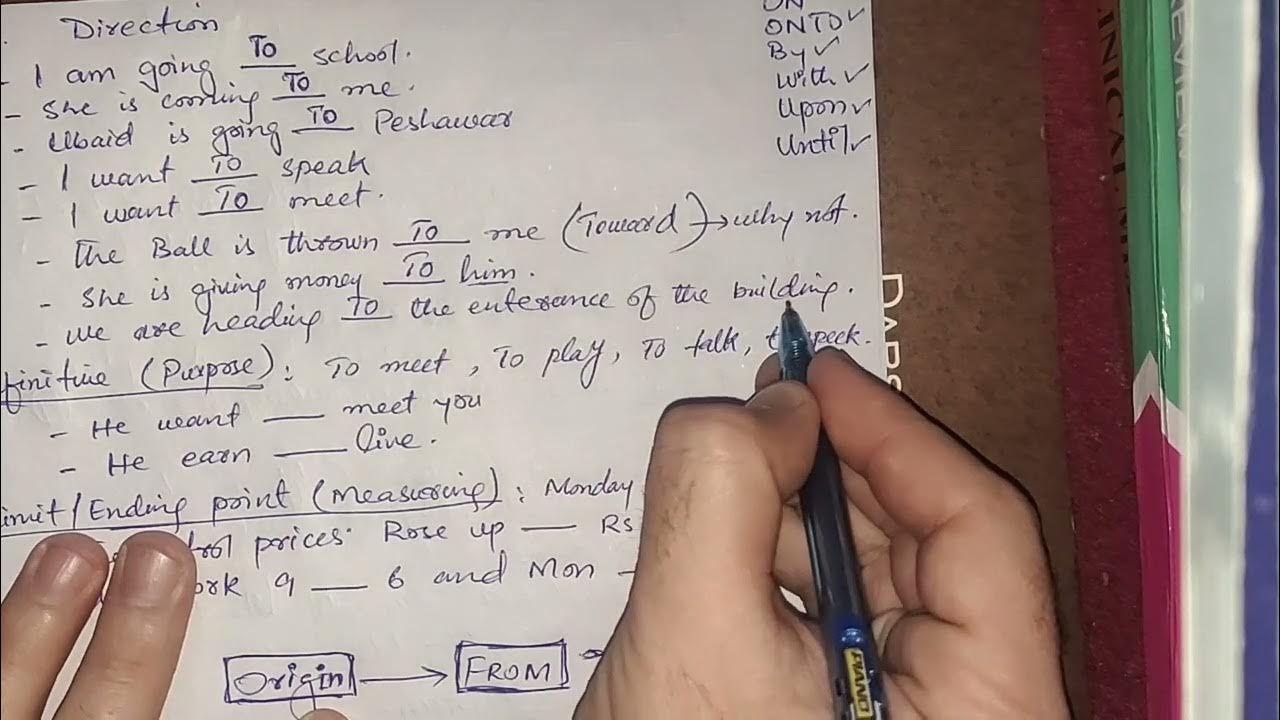 Direction
- I am going To school.
- She is coming To me.
- Ubaid is going To Peshawar
- I want To speak
- I want To meet.
- The Ball is thrown To me (Toward) → why not.
- She is giving money To him.
- we are heading To the enterance of the building.
finitive (Purpose): To meet, To play, To talk, to speek.
- He want ___ meet you
- He earn ___ live.
imit/Ending point (Measuring): Monday
prices. Rose up ___ Rs
ork 9 ___ 6 and Mon
Origin → FROM
ON
ONTO ✓
By ✓
With ✓
Upon ✓
Until ✓
PIANO
REVIEW